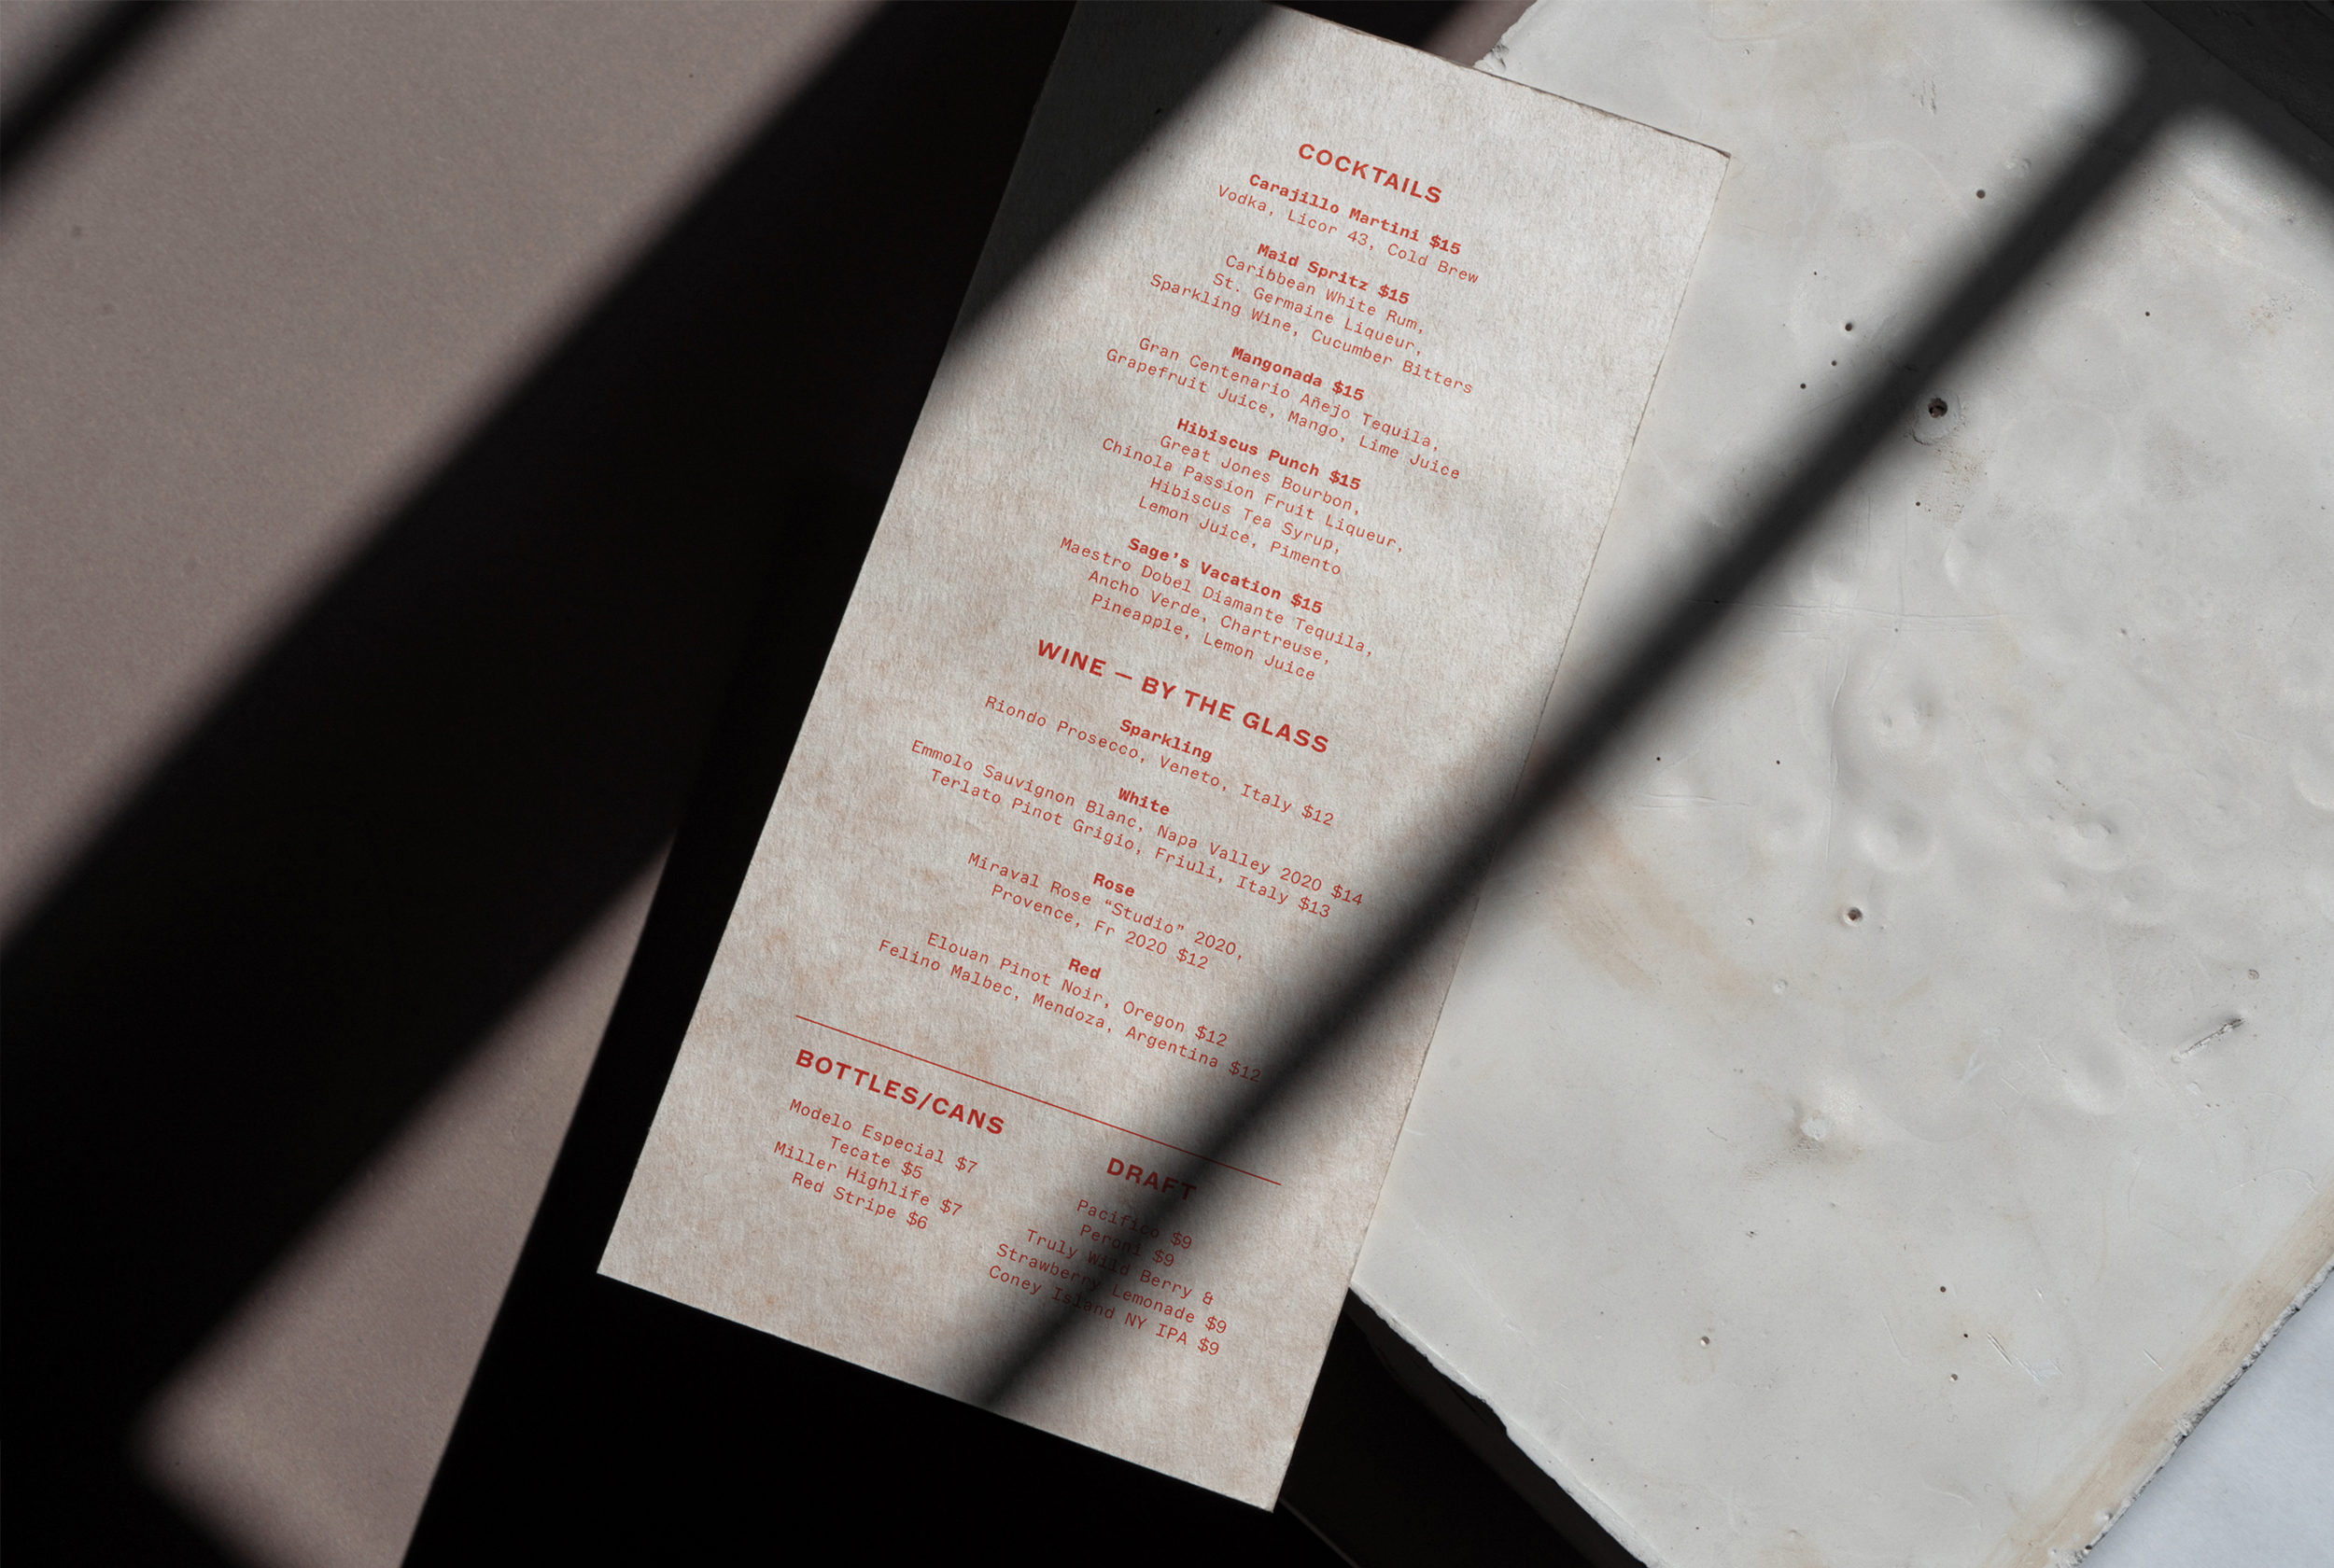 COCKTAILS
Carajillo Martini $15
Vodka, Licor 43, Cold Brew
Maid Spritz $15
Caribbean White Rum,
St. Germaine Liqueur,
Sparkling Wine, Cucumber Bitters
Mangonada $15
Gran Centenario Añejo Tequila,
Grapefruit Juice, Mango, Lime Juice
Hibiscus Punch $15
Great Jones Bourbon,
Chinola Passion Fruit Liqueur,
Hibiscus Tea Syrup,
Lemon Juice, Pimento
Sage's Vacation $15
Maestro Dobel Diamante Tequila,
Ancho Verde, Chartreuse,
Pineapple, Lemon Juice
WINE – BY THE GLASS
Sparkling
Riondo Prosecco, Veneto, Italy $12
White
Emmolo Sauvignon Blanc, Napa Valley 2020 $14
Terlato Pinot Grigio, Friuli, Italy $13
Rose
Miraval Rose “Studio” 2020,
Provence, Fr 2020 $12
Red
Elouan Pinot Noir, Oregon $12
Felino Malbec, Mendoza, Argentina $12
BOTTLES/CANS
Modelo Especial $7
Tecate $5
Miller Highlife $7
Red Stripe $6
DRAFT
Pacifico $9
Peroni $9
Truly Wild Berry &
Strawberry Lemonade $9
Coney Island NY IPA $9